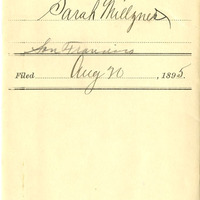 Sarah Millzner
San Francisco
Filed Aug 20, 1895.